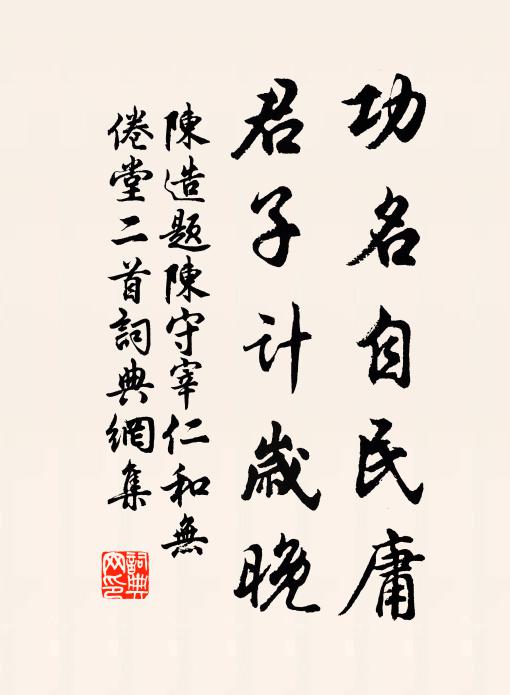 功名自民庸
君子计歳晚
陳造題陳守宰仁和無
倦堂二首詞典網集
詞典网印